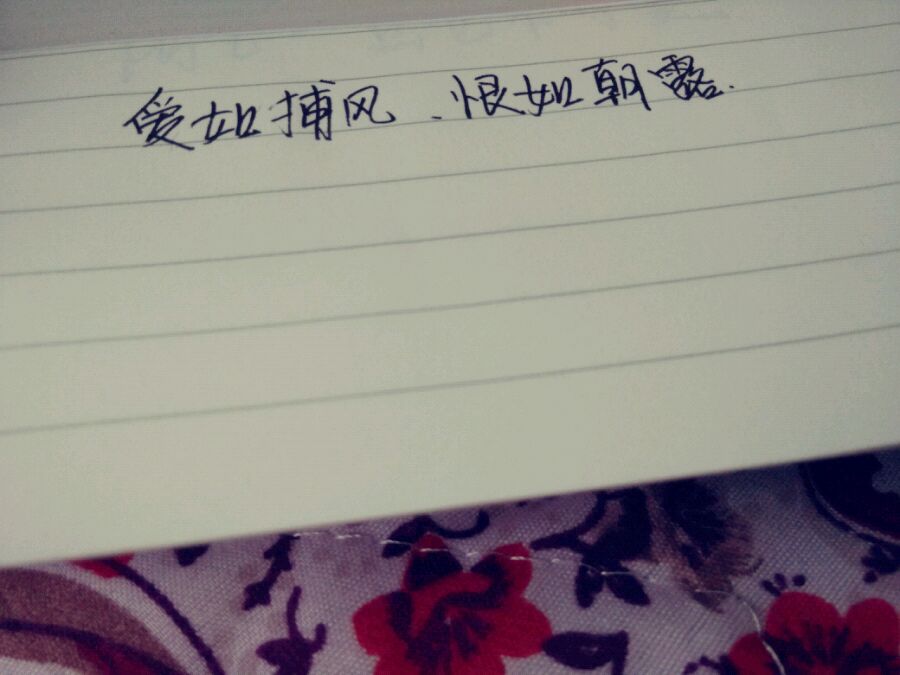 爱如捕风.恨如朝露.